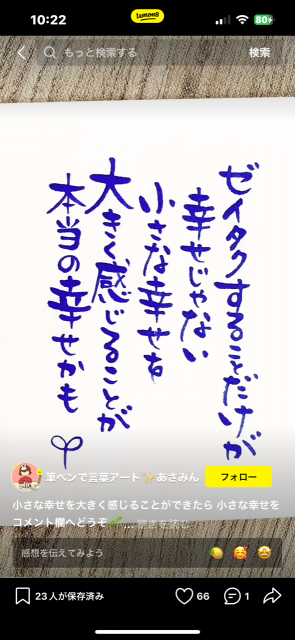 10:22
lemon8
80
もっと検索する
検索
ゼイタクすることだけが
幸せじゃない
小さな幸せを
大きく感じることが
本当の幸せかも
筆ペンで言葉アート✨あさみん
フォロー
小さな幸せを大きく感じることができたら 小さな幸せを
コメント欄へどうぞ🌱... 続きを読む
感想を伝えてみよう
23人が保存済み
66
1